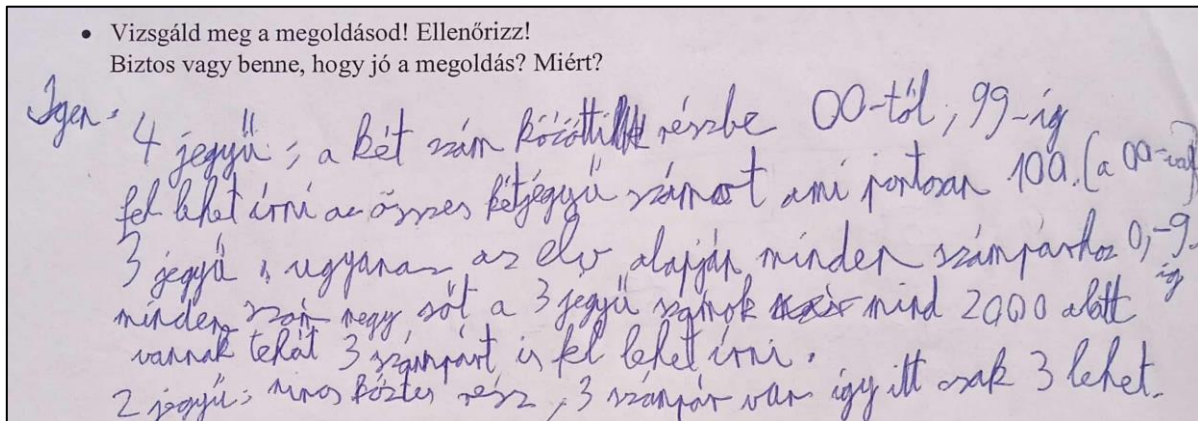 • Vizsgáld meg a megoldásod! Ellenőrizz!
Biztos vagy benne, hogy jó a megoldás? Miért?
Igen. 4 jegyű; a két szám közötti részbe 00-tól; 99-ig
fel lehet írni az összes kétjegyű számot ami pontosan 100. (a 00-val)
3 jegyű; ugyanaz az elv alapján minden számpárhoz 0,-9-ig
minden szám megy sőt a 3 jegyű számok mind 2000 alatt
vannak tehát 3 számpárt is fel lehet írni.
2 jegyű; nincs köztes rész, 3 számpár van így itt csak 3 lehet.